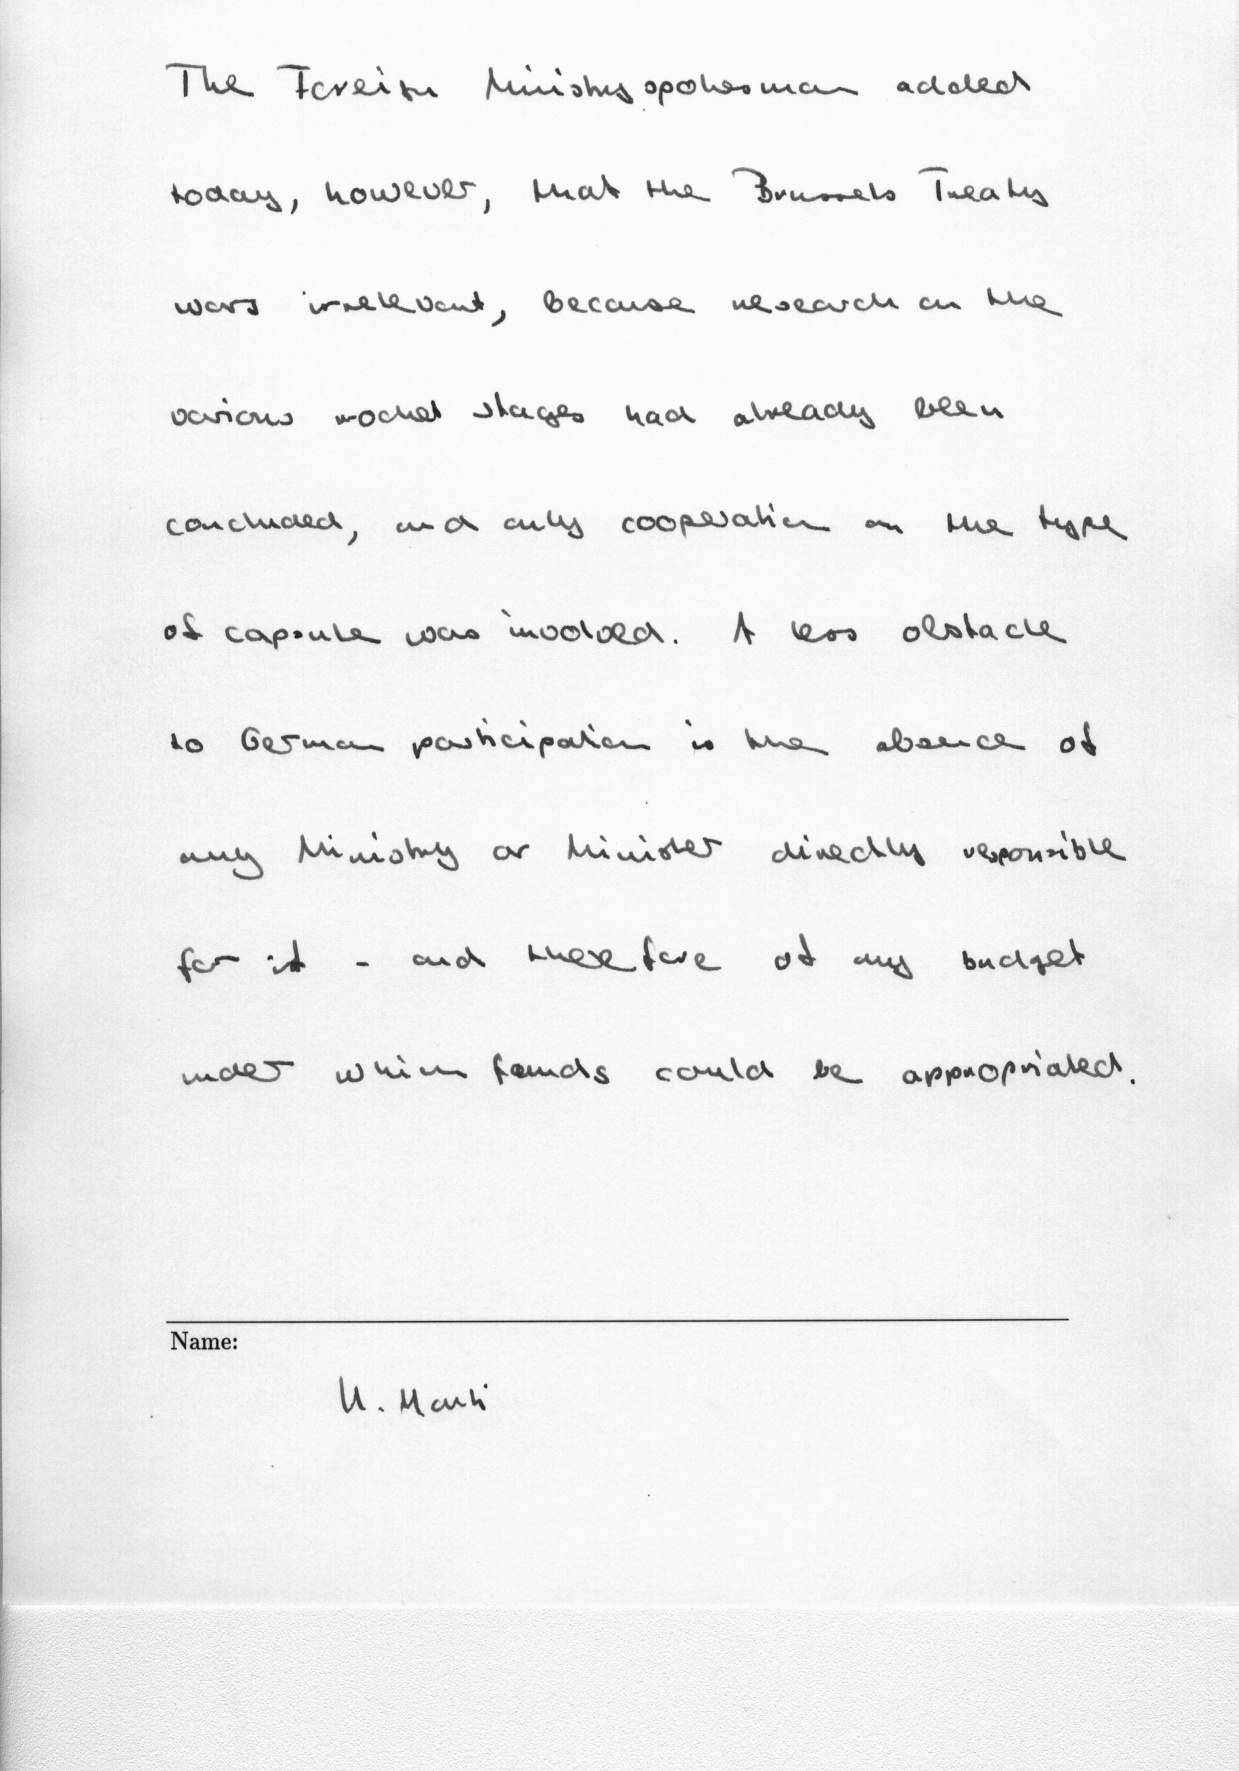 The Foreign Ministry spokesman added
today, however, that the Brussels Treaty
was irrelevant, because research on the
various rocket stages had already been
concluded, and only cooperation on the type
of capsule was involved. A less obstacle
to German participation is the absence of
any Ministry or Minister directly responsible
for it - and therefore of any budget
under which funds could be appropriated.
Name:
U. Marti